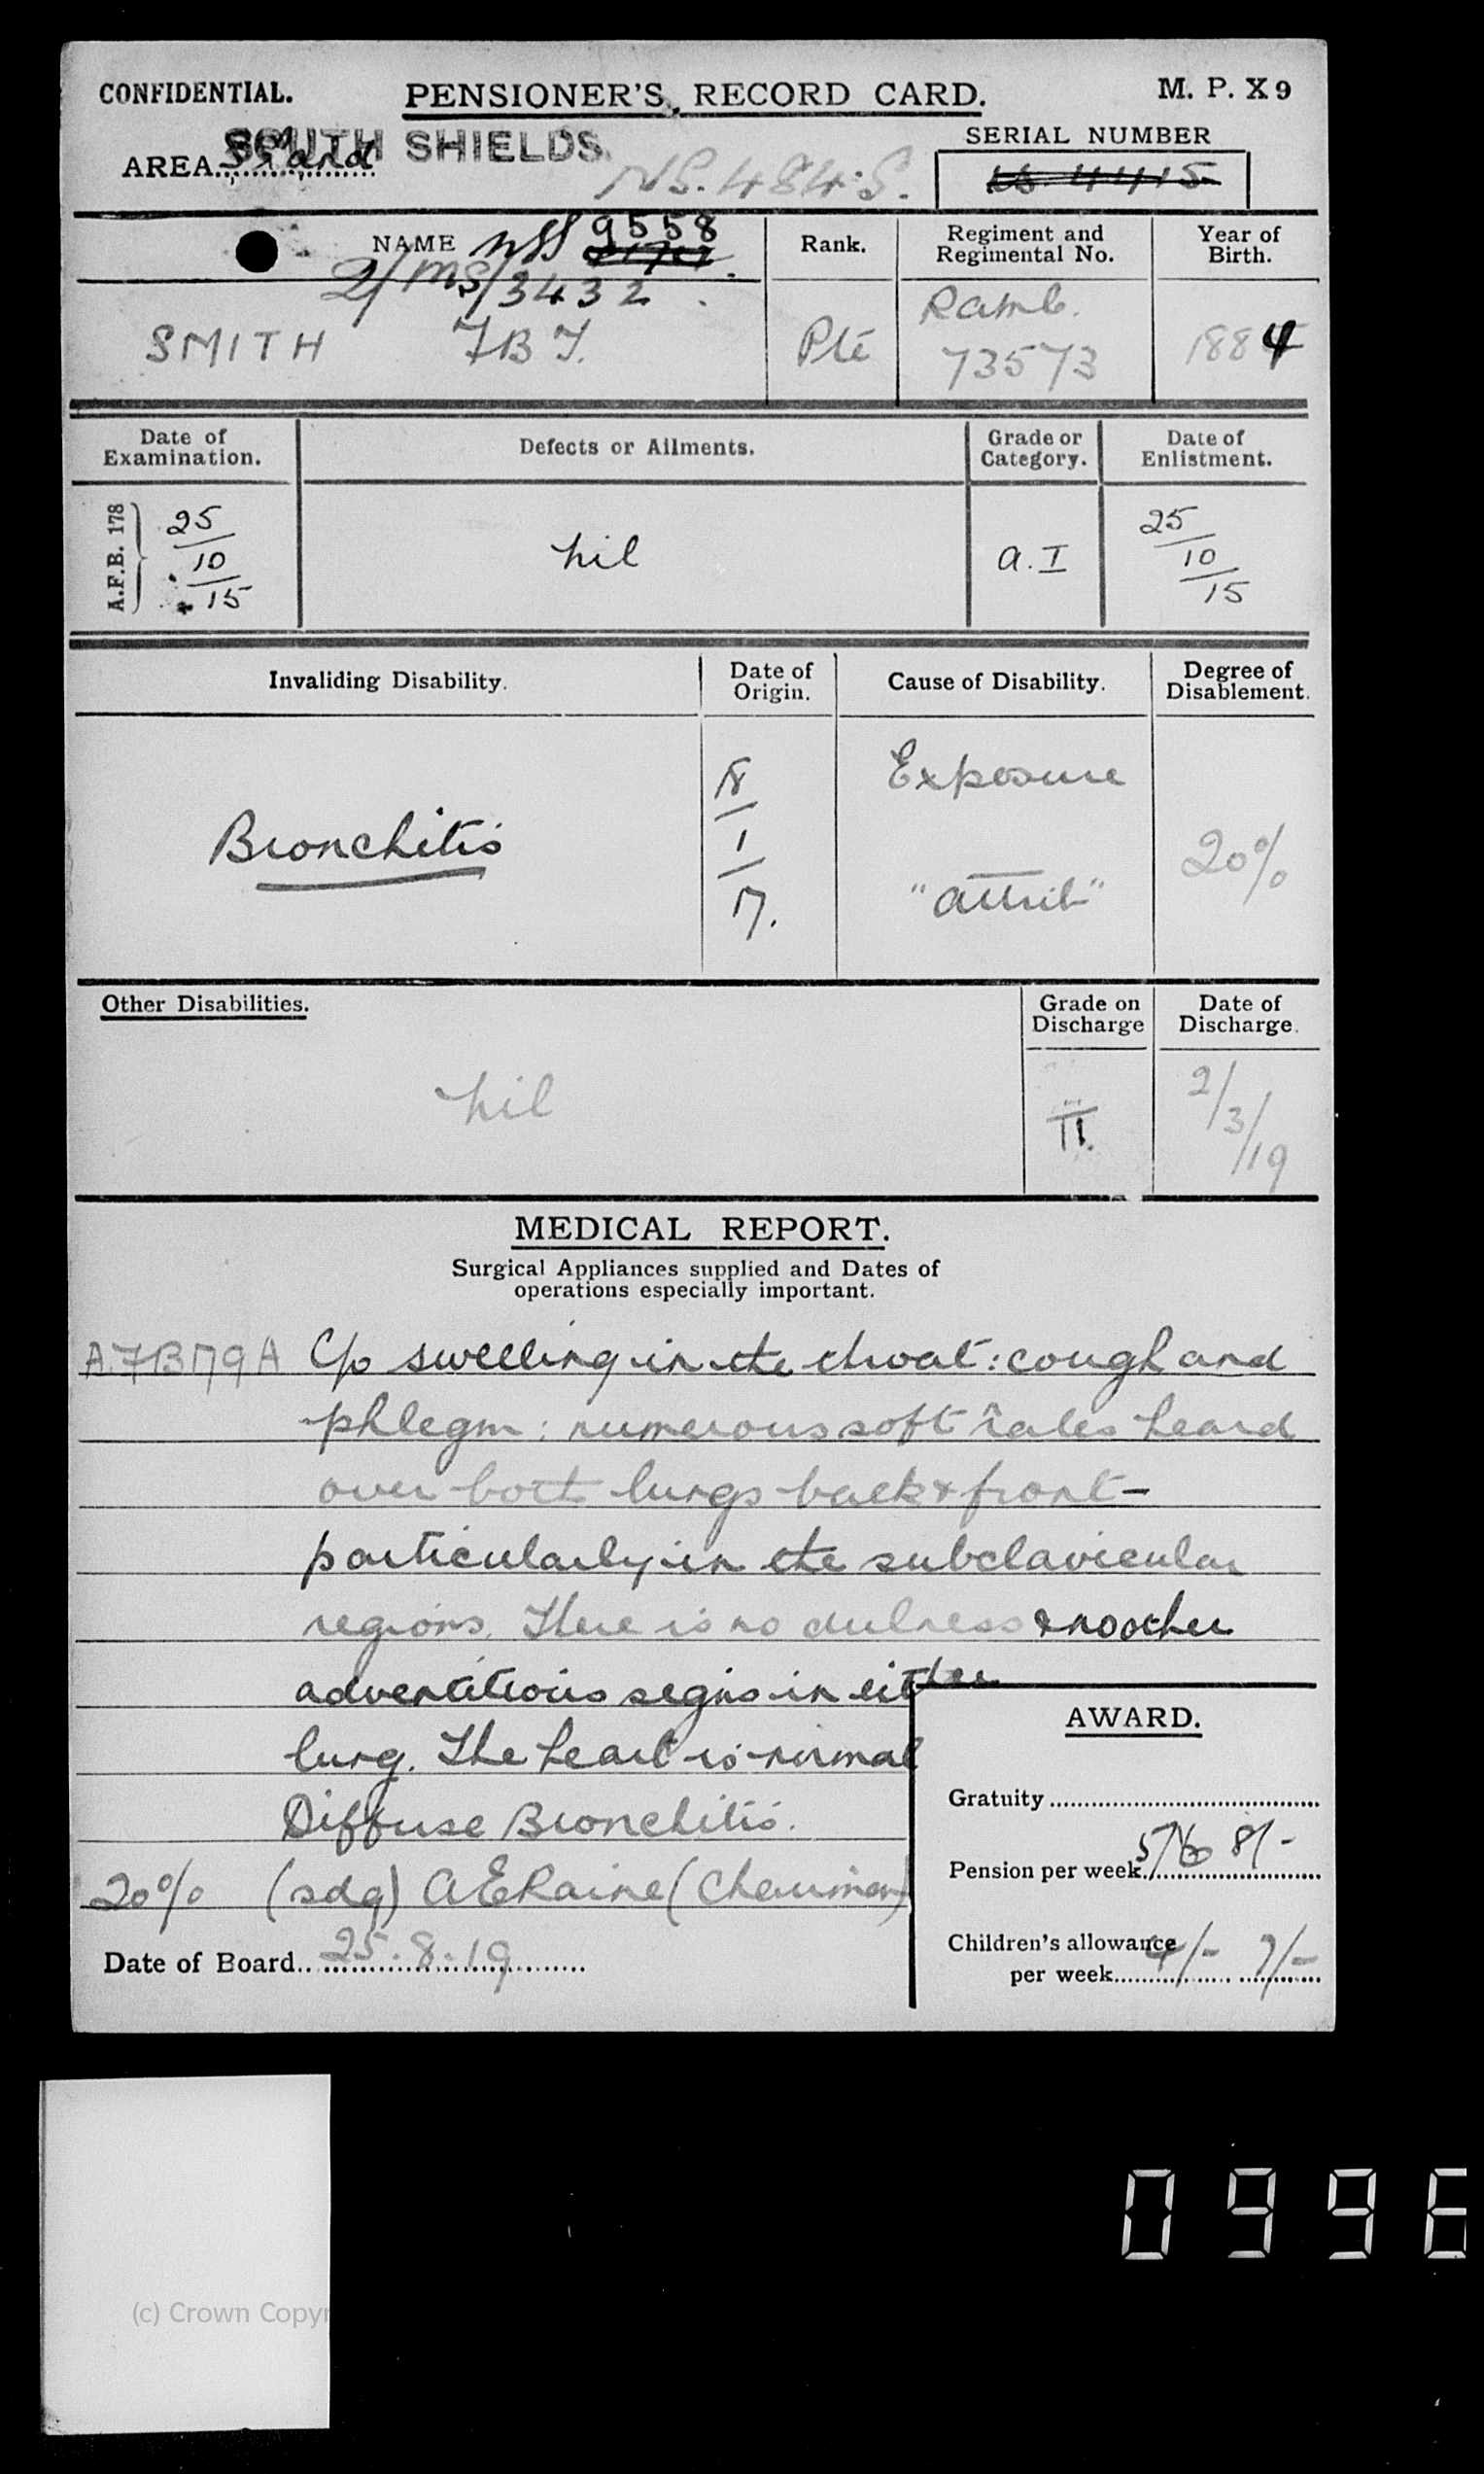 CONFIDENTIAL. PENSIONER'S RECORD CARD. M. P. X 9
SOUTH SHIELDS.
SERIAL NUMBER
AREA
NS. 484. S.
4415
NAME
9558
2/MS/3432.
Rank.
Regiment and
Regimental No.
Year of
Birth.
SMITH
Pte
Ramb.
73573
1884
Date of
Examination.
Defects or Ailments.
Grade or
Category.
Date of
Enlistment.
A.F.B. 178
25
10
15
nil
A.I
25
10
15
Invaliding Disability.
Date of
Origin.
Cause of Disability.
Degree of
Disablement.
Bronchitis
1
17.
Exposure
"attrib"
20%
Other Disabilities.
Grade on
Discharge
Date of
Discharge.
nil
2/3/19
MEDICAL REPORT.
Surgical Appliances supplied and Dates of
operations especially important.
A.F.B179A C/o swelling in the throat: cough and
phlegm: numerous soft râles heard
over both lungs back & front -
particularly in the subclavicular
regions. There is no dulness & no other
adventitious signs in either
lung. The heart is normal
Diffuse Bronchitis.
20% (sdg) A E Raine (Chairman)
Date of Board 25.8.19
AWARD.
Gratuity
Pension per week 8/-
Children's allowance
per week 4/- 7/-
(c) Crown Copyr
099